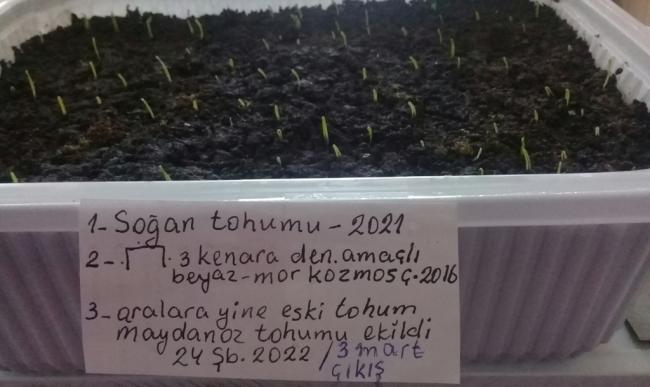 1- Soğan tohumu - 2021
2- 3 kenara den. amaçlı
beyaz-mor kozmos ç. 2016
3- aralara yine eski tohum
maydanoz tohumu ekildi
24 Şb. 2022 / 3 mart
çıkış